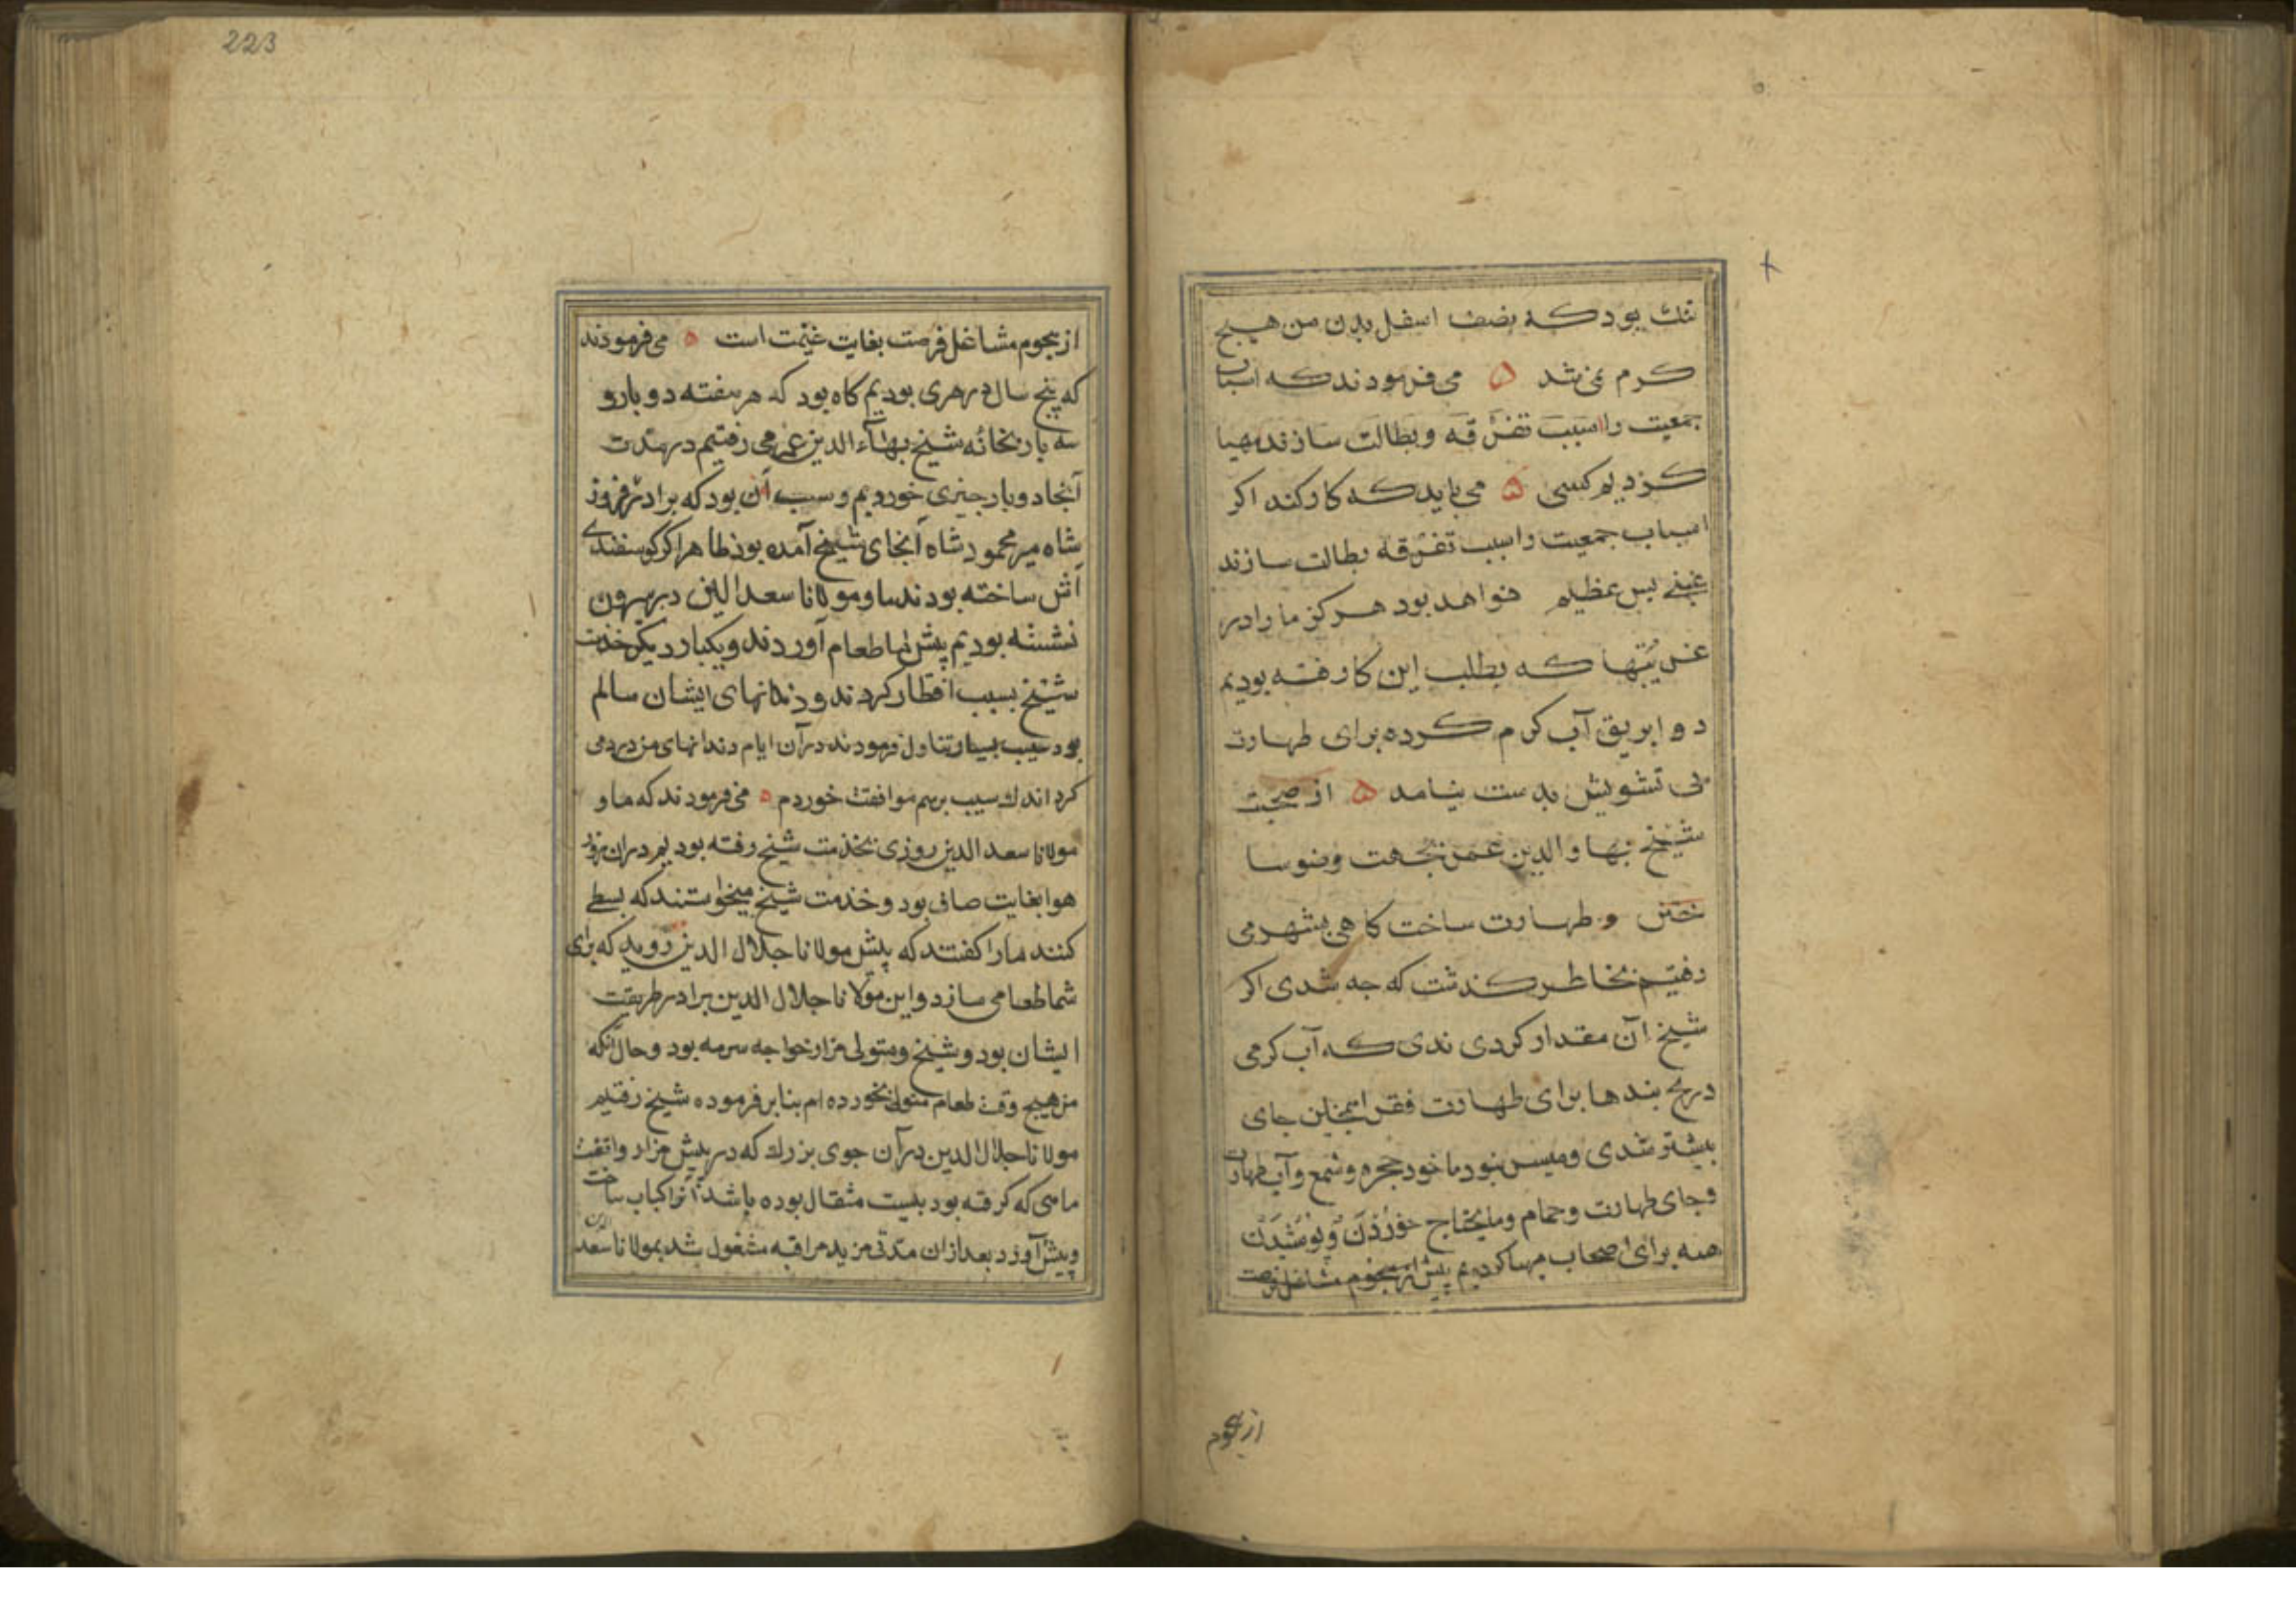 تنك بود كه بنصف اسفل بدن من هیچ
كرم نمی شد ۵ می فرمودند كه اسباب
جمعیت را سبب تفرقه و بطالت سازند مهیا
كردیم كسی ۵ می باید كه كار كند اكر
اسباب جمعیت را سبب تفرقه بطالت سازند
غبنی بس عظیم خواهد بود هركز ما را در
غربتها كه بطلب این كار رفته بودیم
دو ابریق آب كرم كرده برای طهارت
بی تشویش بدست نیامد ۵ از صحبت
شیخ بهاو الدین عمر بجهت وضوسا
ختن و طهارت ساخت كاهی بشهر می
رفتیم بخاطر كذشت كه جه شدی اكر
شیخ آن مقدار كردی ندی كه آب كرمی
در یخ بندها برای طهارت فقرا یمخنلن جای
بیشتر شدی و میسر نبود ما خود حجره و شمع و آب طهارت
وجای طهارت و حمام و مایحتاج خوردن و پوشیدن
همه برای اصحاب مهیا كردیم پیش از هجوم مشاغل فرصت
از هجوم
223
از هجوم مشاغل فرصت بغایت غنیمت است ۵ می فرمودند
كه پنج سال در هری بودیم كاه بود كه هر هفته دو بار و
سه بار بخانه شیخ بهآء الدین عمر می رفتیم در مدت
آنجا دو بار جیزی خوردیم و سبب آن بود كه برادر فیروز
شاه میر محمود شاه آنجای شیخ آمده بود ظاهرا كر كوسفندی
آش ساخته بودند ما و مولانا سعد الدین در بیرون
نشسته بودیم پیش ما طعام آوردند و یكبار دیكر خدمت
شیخ بسیب افطار كردند و دندانهای ایشان سالم
بود سیب بسیار تناول فرمودند در آن ایام دندانهای من درد می
كرد اندك سیب برسم موافقت خوردم ۵ می فرمودند كه ما و
مولانا سعد الدین روزی بخدمت شیخ رفته بودیم در ان روز
هوا بغایت صافی بود و خدمت شیخ میخواستند كه بسطی
كنند ما را كفتند كه پیش مولانا جلال الدین روید كه برای
شما طعامی سازد و این مولانا جلال الدین برادر طریقت
ایشان بود و شیخ و متولی مزار خواجه سرمه بود و حال آنكه
من هیچ وقت طعام متولی نخورده ام بنا بر فرموده شیخ رفتیم
مولانا جلال الدین در آن جوی بزرك كه در پیش مزار واقفست
ماهی كه كرفته بود بیست مثقال بوده باشد آنرا كباب ساخت
و پیش آورد بعد از ان مدتی مزید مراقبه مشغول شد بمولانا سعد الدین